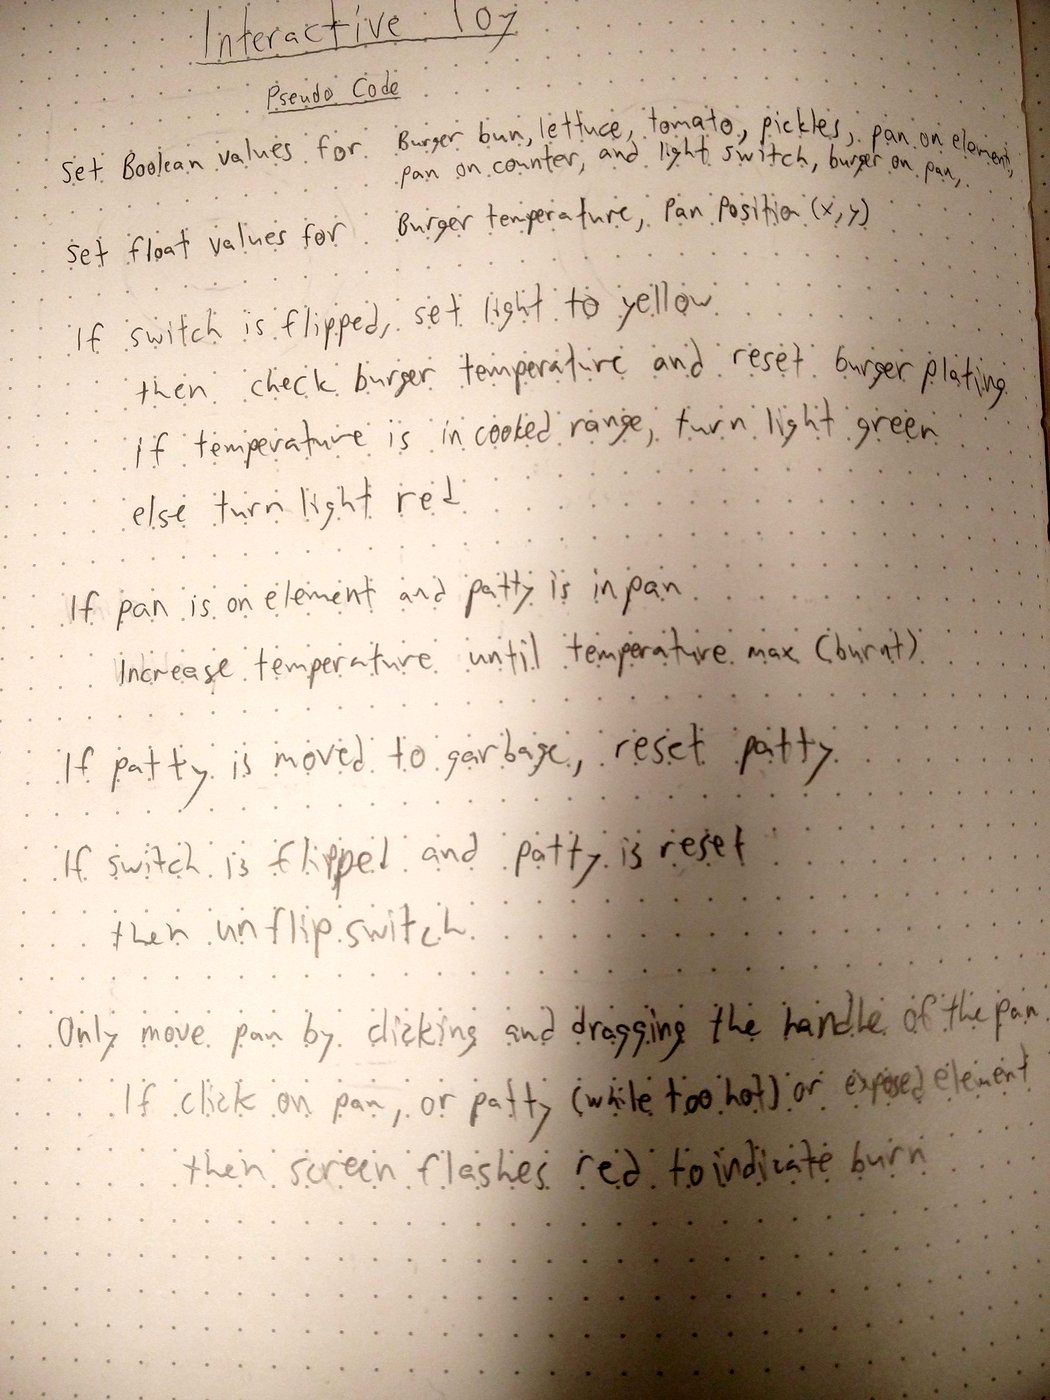 Interactive Toy
Pseudo Code
Set Boolean values for Burger bun, lettuce, tomato, pickles, pan on element,
pan on counter, and light switch, burger on pan,
Set float values for Burger temperature, Pan Position (x,y)
If switch is flipped, set light to yellow
then check burger temperature and reset burger plating
if temperature is in cooked range, turn light green
else turn light red
If pan is on element and patty is in pan
Increase temperature until temperature max (burnt)
If patty is moved to garbage, reset patty
If switch is flipped and patty is reset
then unflip switch
Only move pan by clicking and dragging the handle of the pan
If click on pan, or patty (while too hot) or exposed element
then screen flashes red to indicate burn